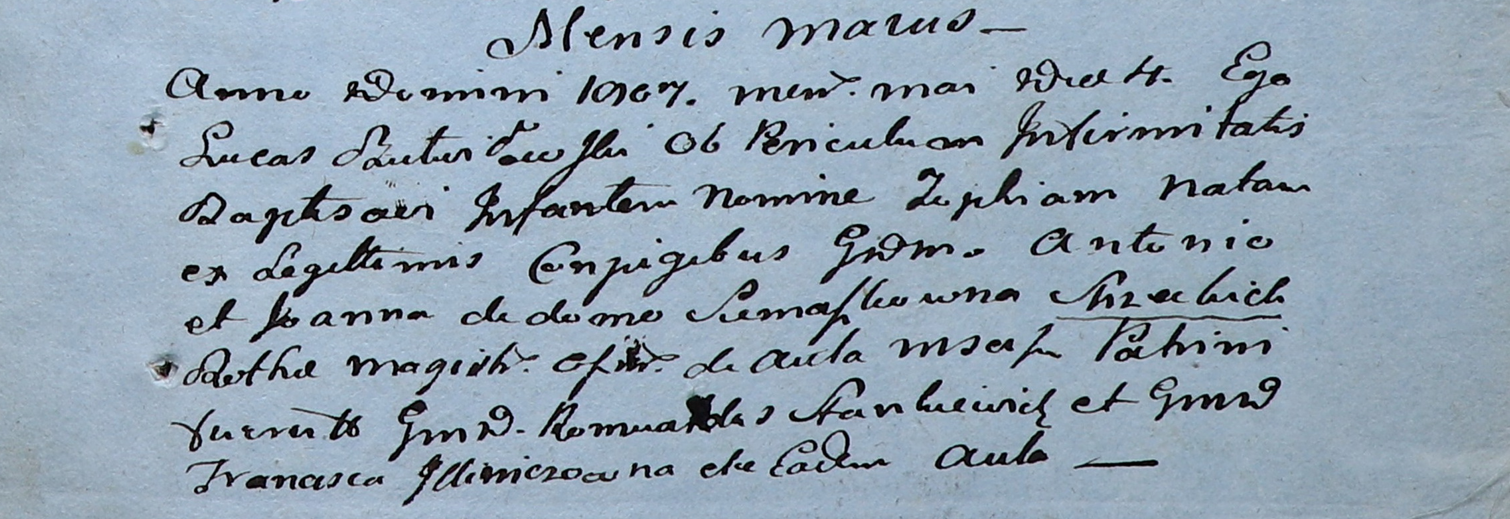 Mensis maius —
Anno Domini 1867. men. mai Die 4. Ego
Lucas Ob Periculum Infirmitatis
Baptisavi Infantem nomine Zophiam natam
ex Legittimis Conjugibus Gndmo. Antonio
et Joanna de domo Siemaszkowna
magistr. de aula Patrini
fuerunt Gnrd. Romualdus Stankiewicz et Gnrd
Francisca de Eadem aula —